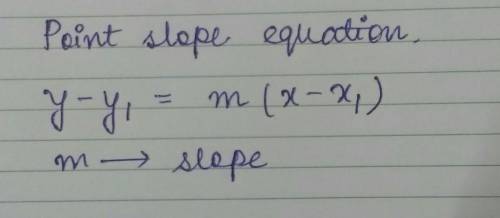 Point slope equation.
y - y₁ = m (x - x₁)
m → slope